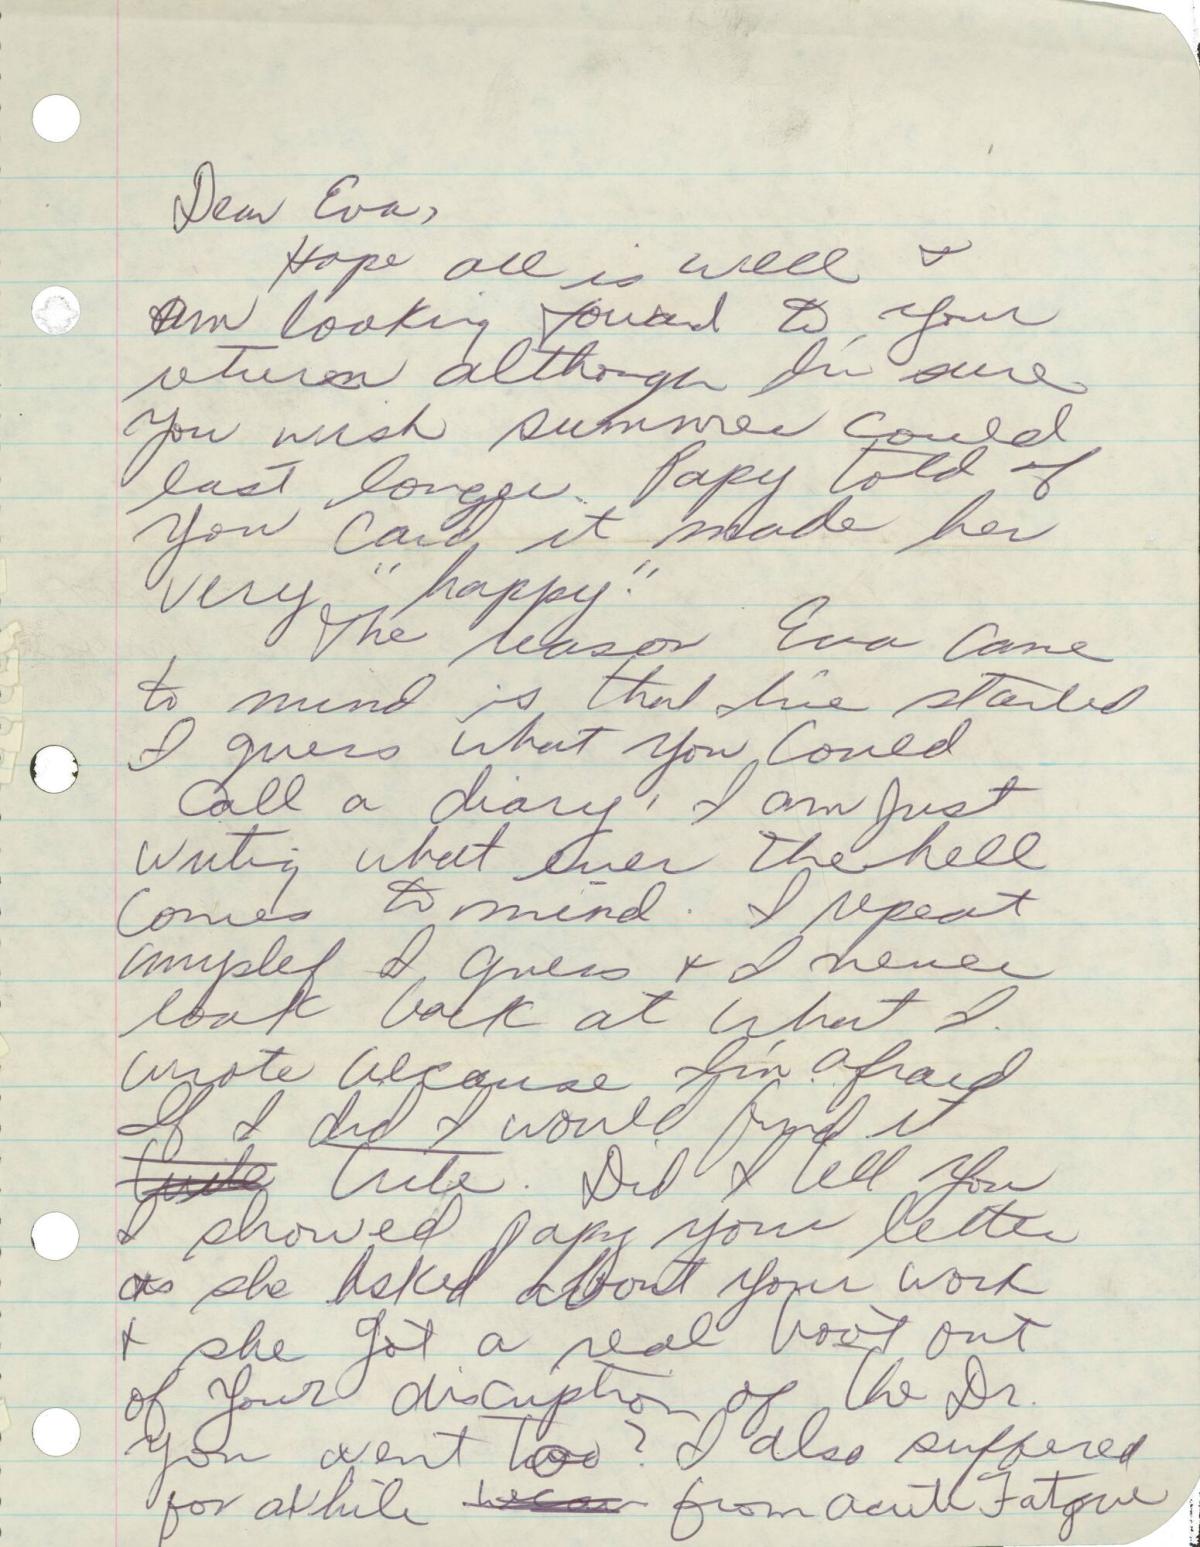 Dear Eva,
Hope all is well &
am looking foward to your
return although I'm sure
you wish summer could
last longer. Papy told of
you card, it made her
very "happy."
The reason Eva came
to mind is that I've started
I guess what you could
call a diary, I am just
writing what ever the hell
comes to mind. I repeat
myslef I guess & I never
look back at what I
wrote because I'm afraid
If I did I would find it
trite. Did I tell you
I showed Papy your letter
as she asked about your work
& she got a real boot out
of your discription of the Dr.
you went too? I also suffered
for awhile from acute Fatgue